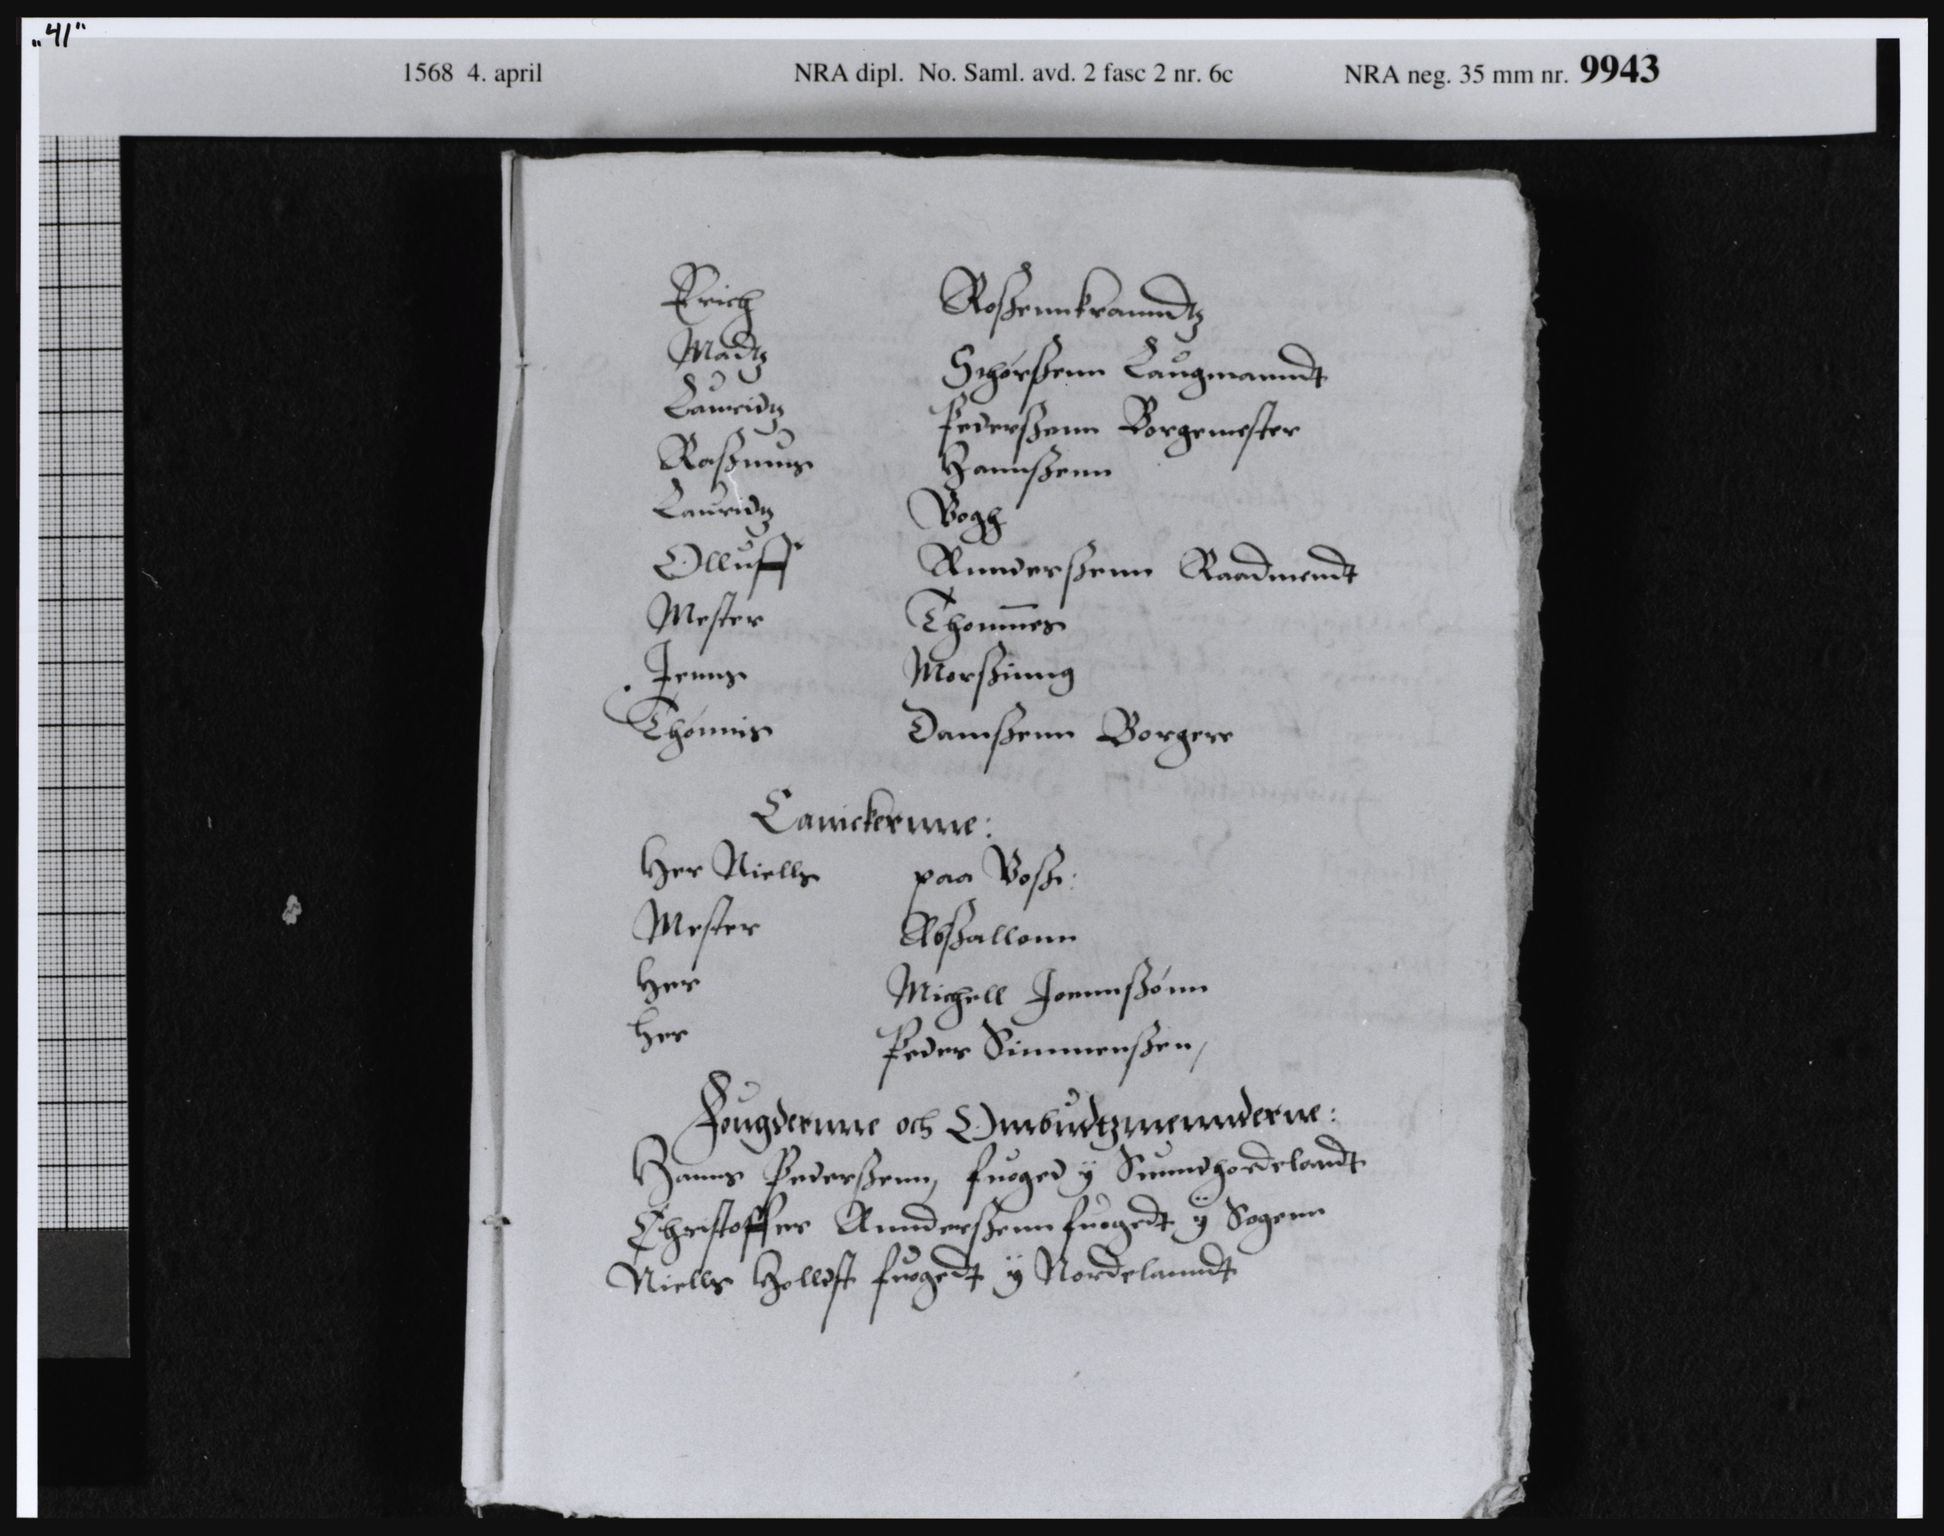 „41“
1568 4. april NRA dipl. No. Saml. avd. 2 fasc 2 nr. 6c NRA neg. 35 mm nr. 9943
Erich Roßennkranndtz
Madtz Schørßenn Laugmanndt
Lauridtz Pederßenn Borgemester
Raßmus Hannßenn
Lauridtz Bogh
Olluff Annderßenn Raadmendt
Mester Thom̅es
Jenns Morßinng
Thønnis Damßenn Borgere
Canickernne:
Her Niells paa Voß:
Mester Abßallonn
Her Michell Joennßønn
Her Peder Simmenßen,
Fougdernne och Ombudtzmennderne:
Hanns Pederßenn, fuoged ÿ Sunndhordelandt
Christoffer Annderßenn fuogedt ÿ Sogenn
Niells Hollst fuogedt ÿ Nordelanndt